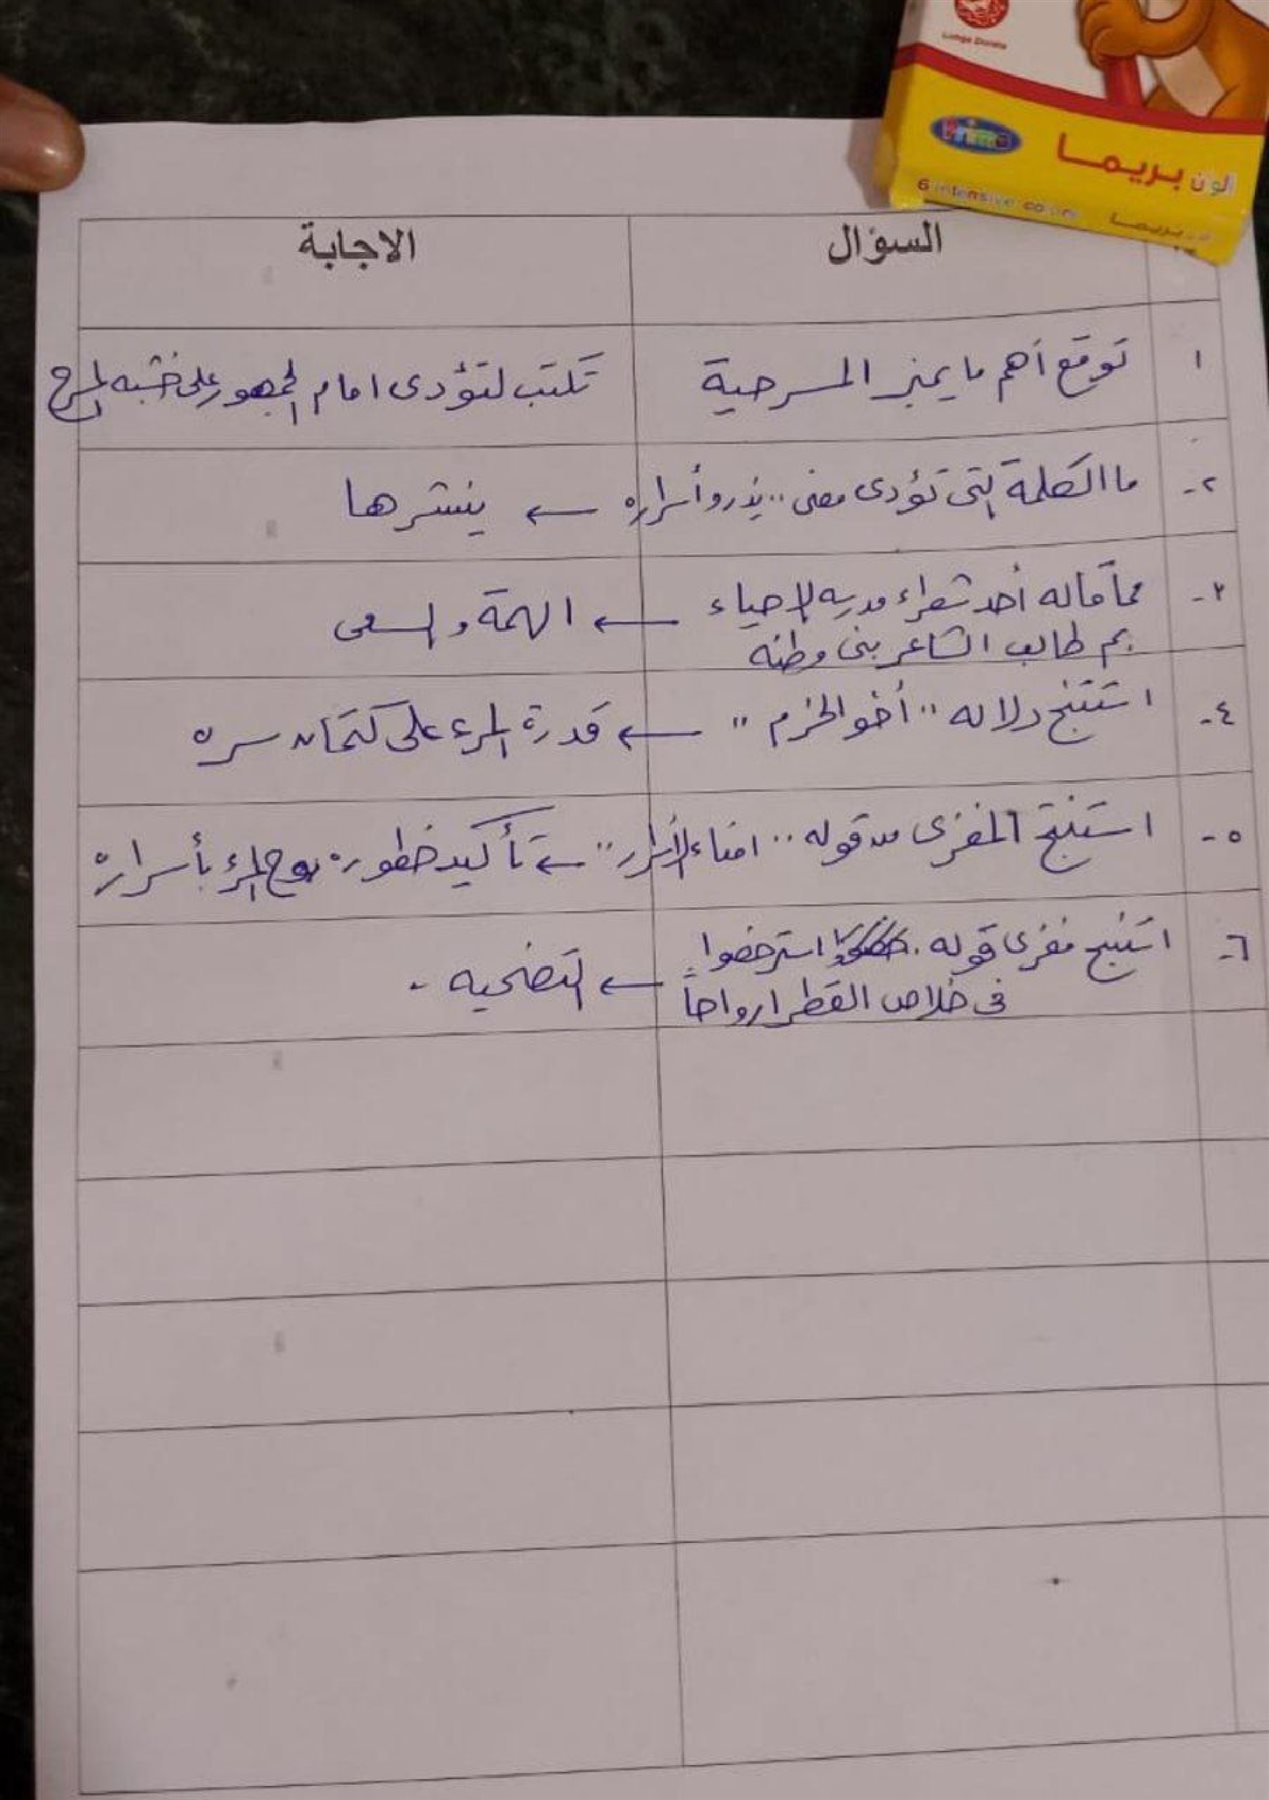 Lunga Durata
Prima
الوان بريما
6 intensive colors
السؤال
الاجابة
١
توقع أهم ما يميز المسرحية
تكتب لتؤدى امام الجمهور على خشبه المسرح
٢-
ما الكلمة التى تؤدى معنى .. يذروا أسراره ← ينشرها
٣-
مما قاله أحد شعراء مدرسه الاحياء
بم طالب الشاعر بنى وطنه
← الهمة والسعى
٤-
استنتج دلاله " أخو الحزم " ← قدرة المرء على كتمان سره
٥-
استنتج المغزى من قوله .. افشاء الأسرار " ← تأكيد خطوره بوح المرء بأسراره
٦-
استنتج مغزى قوله . استرخصوا
فى خلاص القطر ارواحاً
← التضحيه .